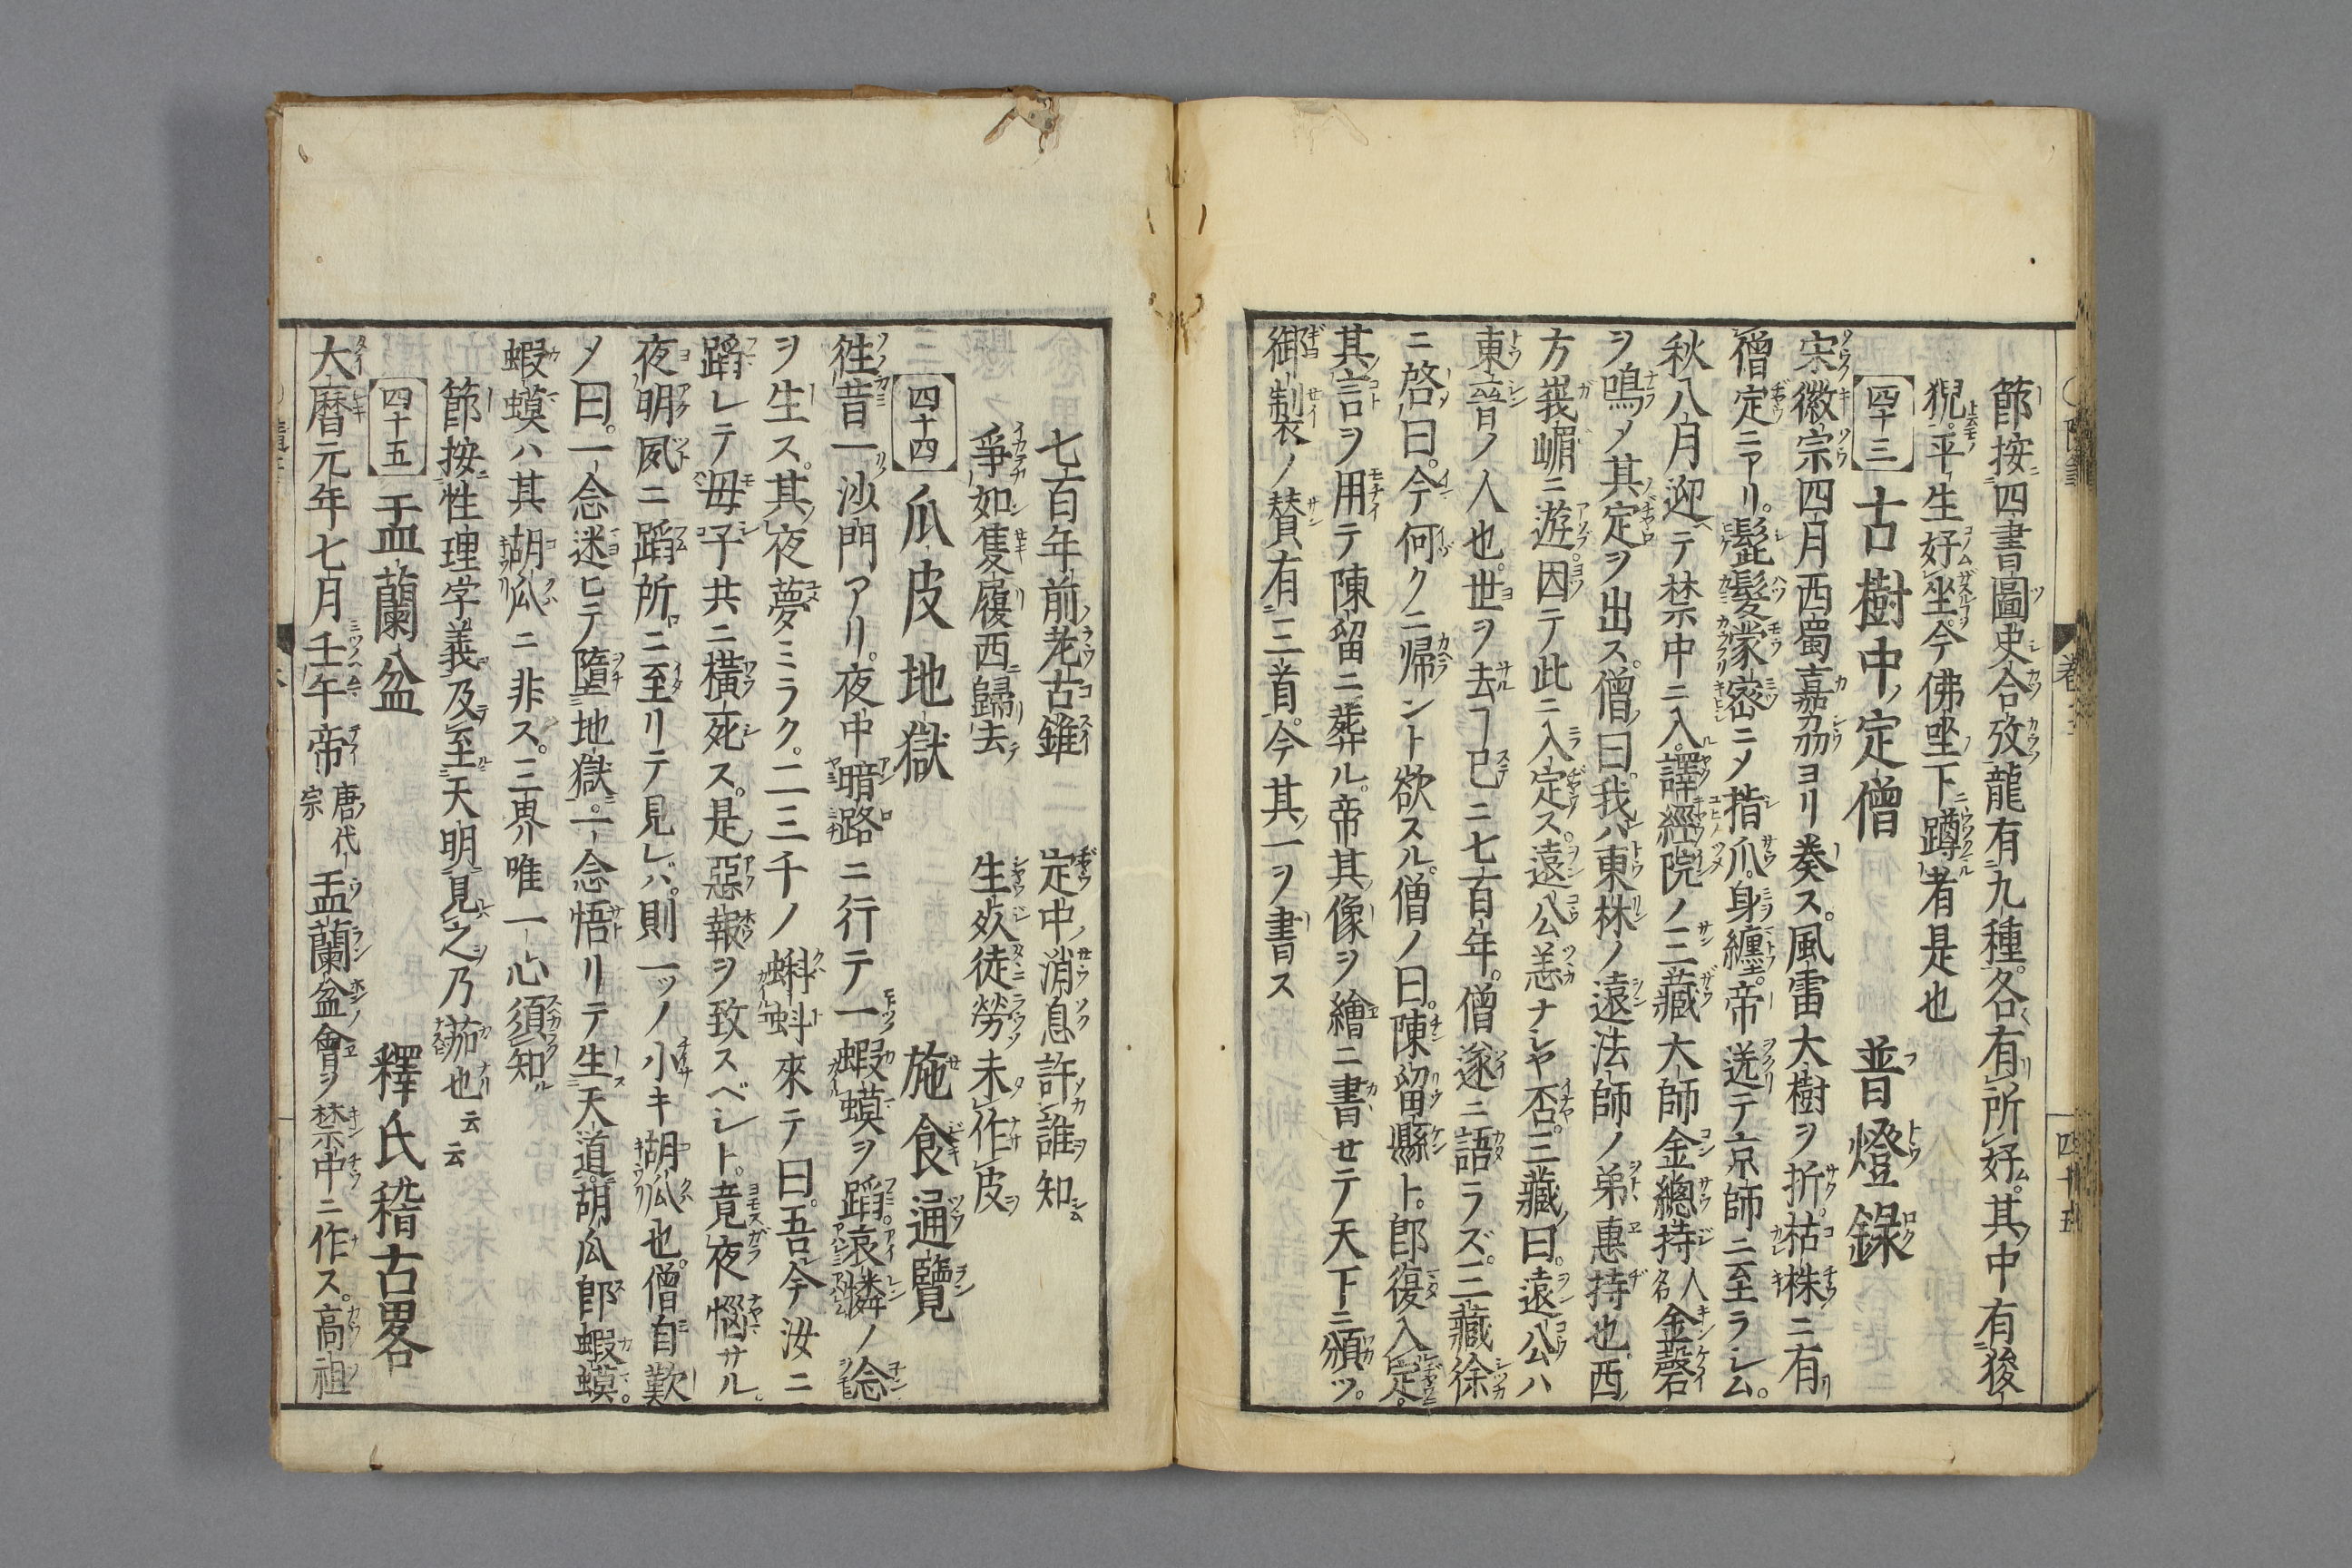 節按四書圖史合攷龍有九種各有所好其中有狻
猊平生好坐今佛坐下蹲者是也
四十三 古樹中ノ定僧 普燈錄
宋徽宗四月西蜀嘉刕ヨリ奏ス。風雷大樹ヲ折。枯株ニ有
僧定ニアリ。髭髮蒙密ニメ指爪身纏。帝送テ京師ニ至ラシム。
秋八月迎テ禁中ニ入。譯經院ノ三藏大師金總持人名金磬
ヲ鳴メ其定ヲ出ス。僧曰。我ハ東林ノ遠法師ノ弟惠持也。西
方峩嵋ニ遊。因テ此ニ入定ス。遠公恙ナシヤ否。三藏曰。遠公ハ
東晉ノ人也。世ヲ去ヿ已ニ七百年。僧遂ニ語ラズ。三藏徐
ニ啓曰。今何クニ帰ント欲スル。僧ノ曰。陳留縣ト。即復入定。
其言ヲ用テ陳留ニ葬ル。帝其像ヲ繪ニ書セテ天下ニ頒ツ。
御制裳ノ賛有三首。今其一ヲ書ス
七百年前老古錐 定中消息許誰知
爭如隻履西歸去 生死徒勞未作皮
四十四 瓜皮地獄 施食通覽
徃昔一沙門アリ。夜中暗路ニ行テ一蝦蟆ヲ蹈。哀憐ノ念
ヲ生ス。其夜夢ミラク。二三千ノ蝌蚪來テ曰。吾今汝ニ
蹈レテ毋子共ニ橫死ス。是惡報ヲ致スベシト。竟夜惱サル。
夜明夙ニ蹈所ニ至リテ見レバ。則一ツノ小キ胡瓜也。僧自歎
メ曰。一念迷ヒテ墮地獄。一念悟リテ生天道。胡瓜即蝦蟆。
蝦蟆ハ其胡瓜ニ非ス。三界唯一心須知
節按性理字義及至天明見之乃茄也云云
四十五 盂蘭盆 釋氏稽古畧
大曆元年七月壬午帝唐代宗盂蘭盆會ヲ禁中ニ作ス。高祖